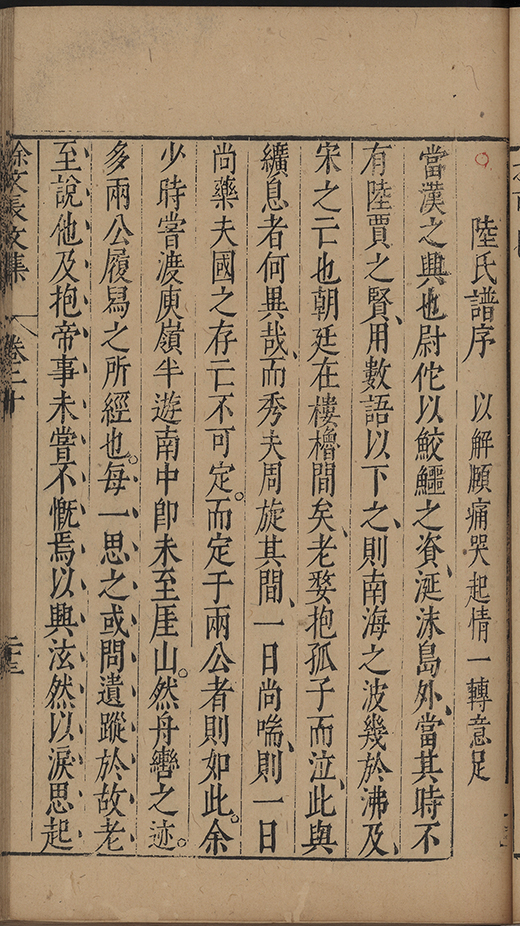 陸氏譜序　以解頤痛哭起情一轉意足
當漢之興也尉佗以鮫鱷之資涎沫島外、當其時不
有陸賈之賢、用數語以下之、則南海之波幾於沸及、
宋之亡也朝廷在樓櫓間矣、老嫠抱孤子而泣、此與
纊息者何異哉、而秀夫周旋其間、一日尚喘、則一日
尚藥夫國之存亡不可定。而定于兩公者則如此。余
少時嘗渡庾嶺半遊南中即未至厓山。然舟轡之迹。
多兩公履舄之所經也。每一思之或問遺蹤於故老
至說他及抱帝事未嘗不慨焉以興泫然以淚思起
徐文長文集　卷二十　二十三